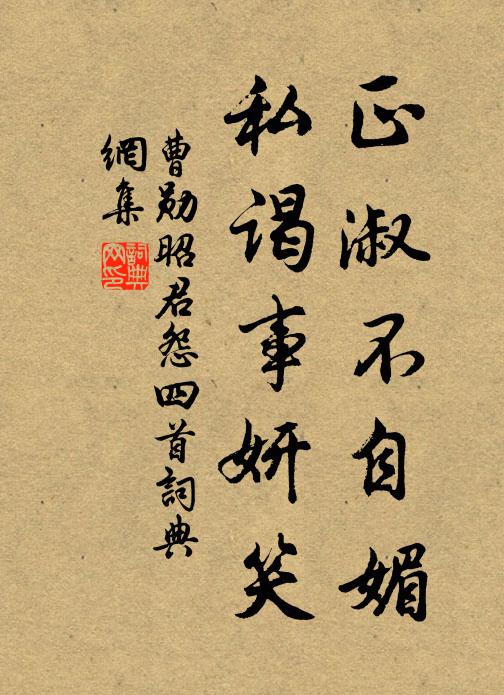 正淑不自媚
私谒事妍笑
曹勋昭君怨四首詞典
網集
詞典网印